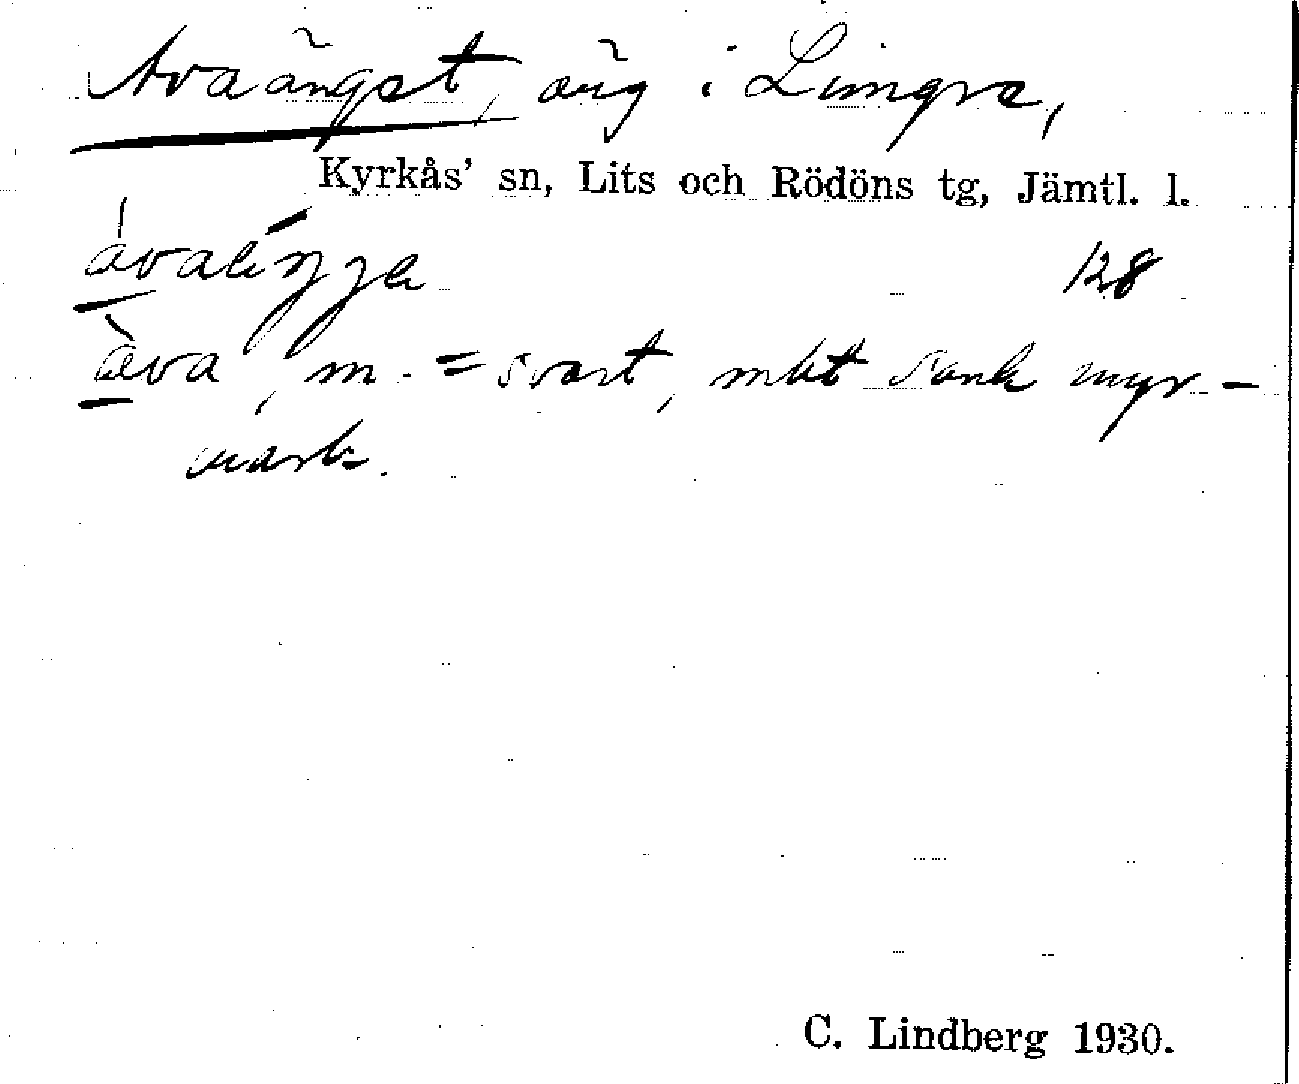 Avaängst, äng i Lungre,
Kyrkås' sn, Lits och Rödöns tg, Jämtl. l.
128
àva, m. = svart, mkt sank myr-
mark.
C. Lindberg 1930.